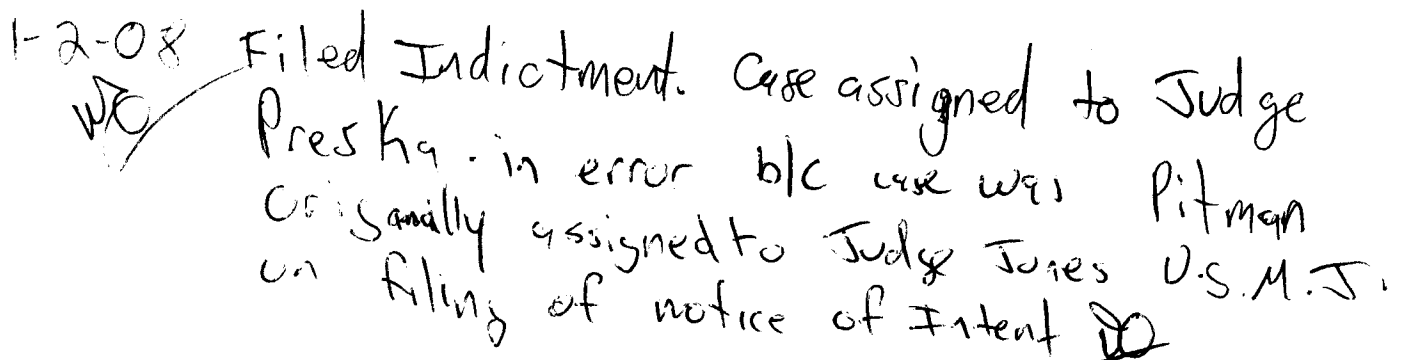 1-2-08 Filed Indictment. Case assigned to Judge
Preska. in error b/c case was Pitman
originally assigned to Judge Jones U.S.M.J.
on filing of notice of Intent